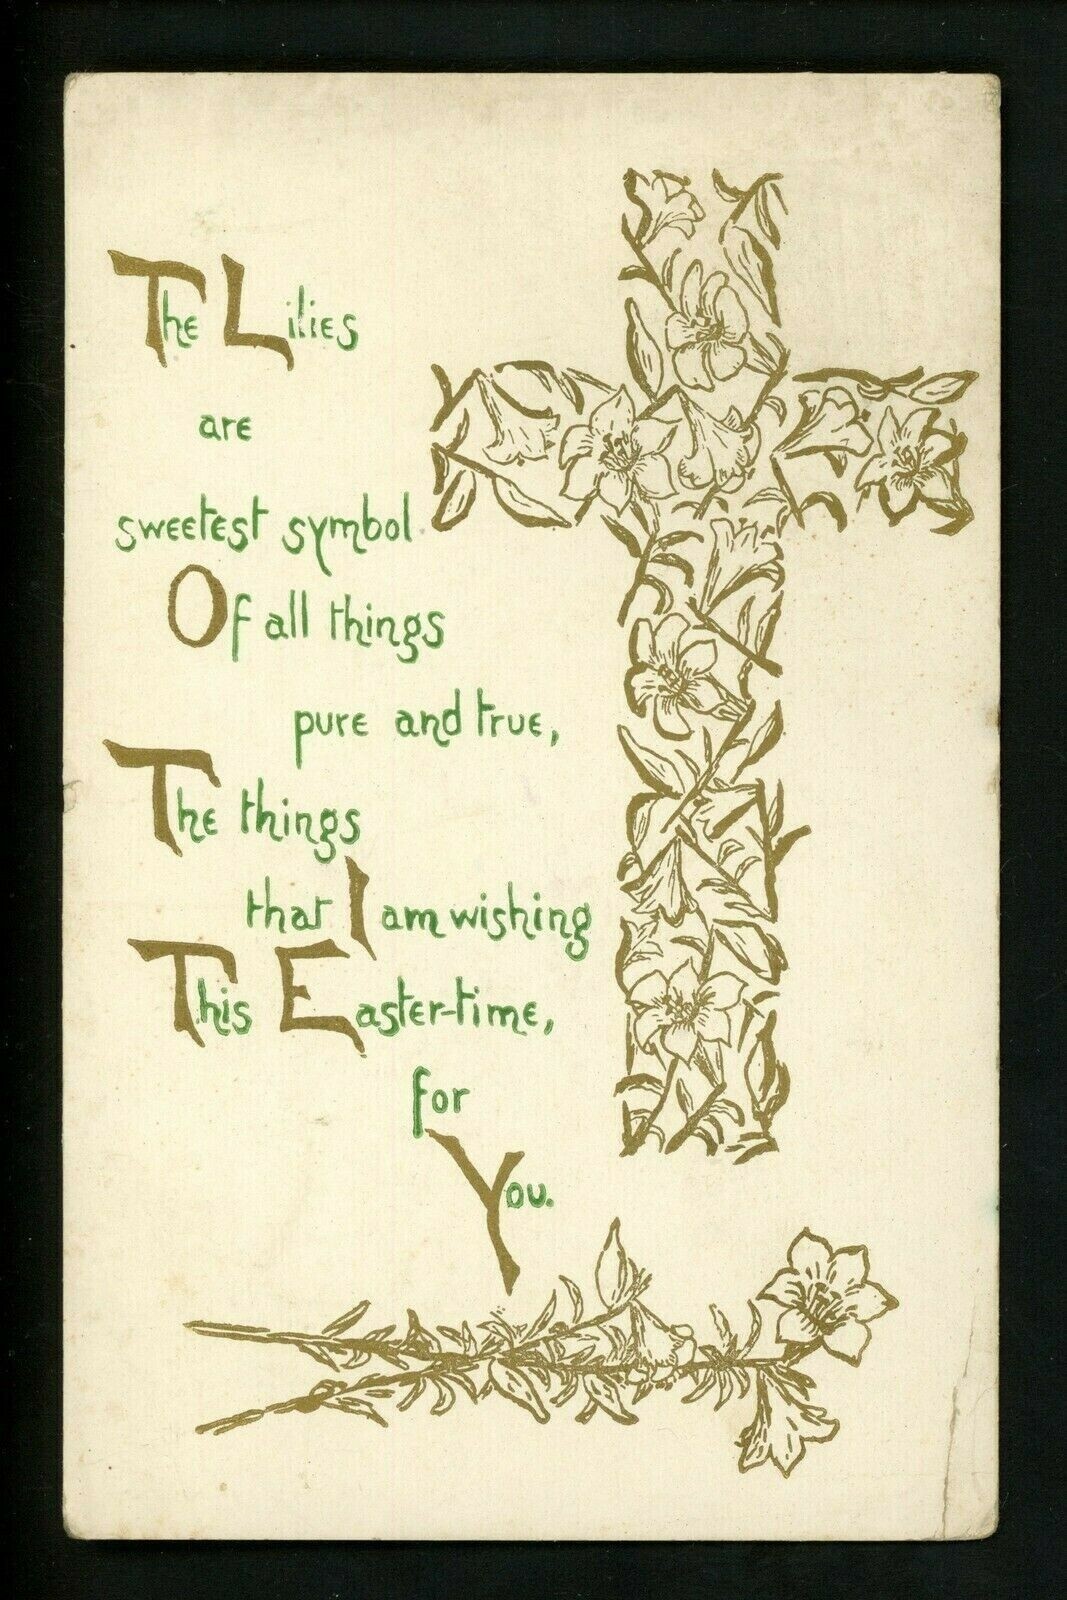 The Lilies
are
sweetest symbol
Of all things
pure and true,
The things
that I am wishing
This Easter-time,
for
You.